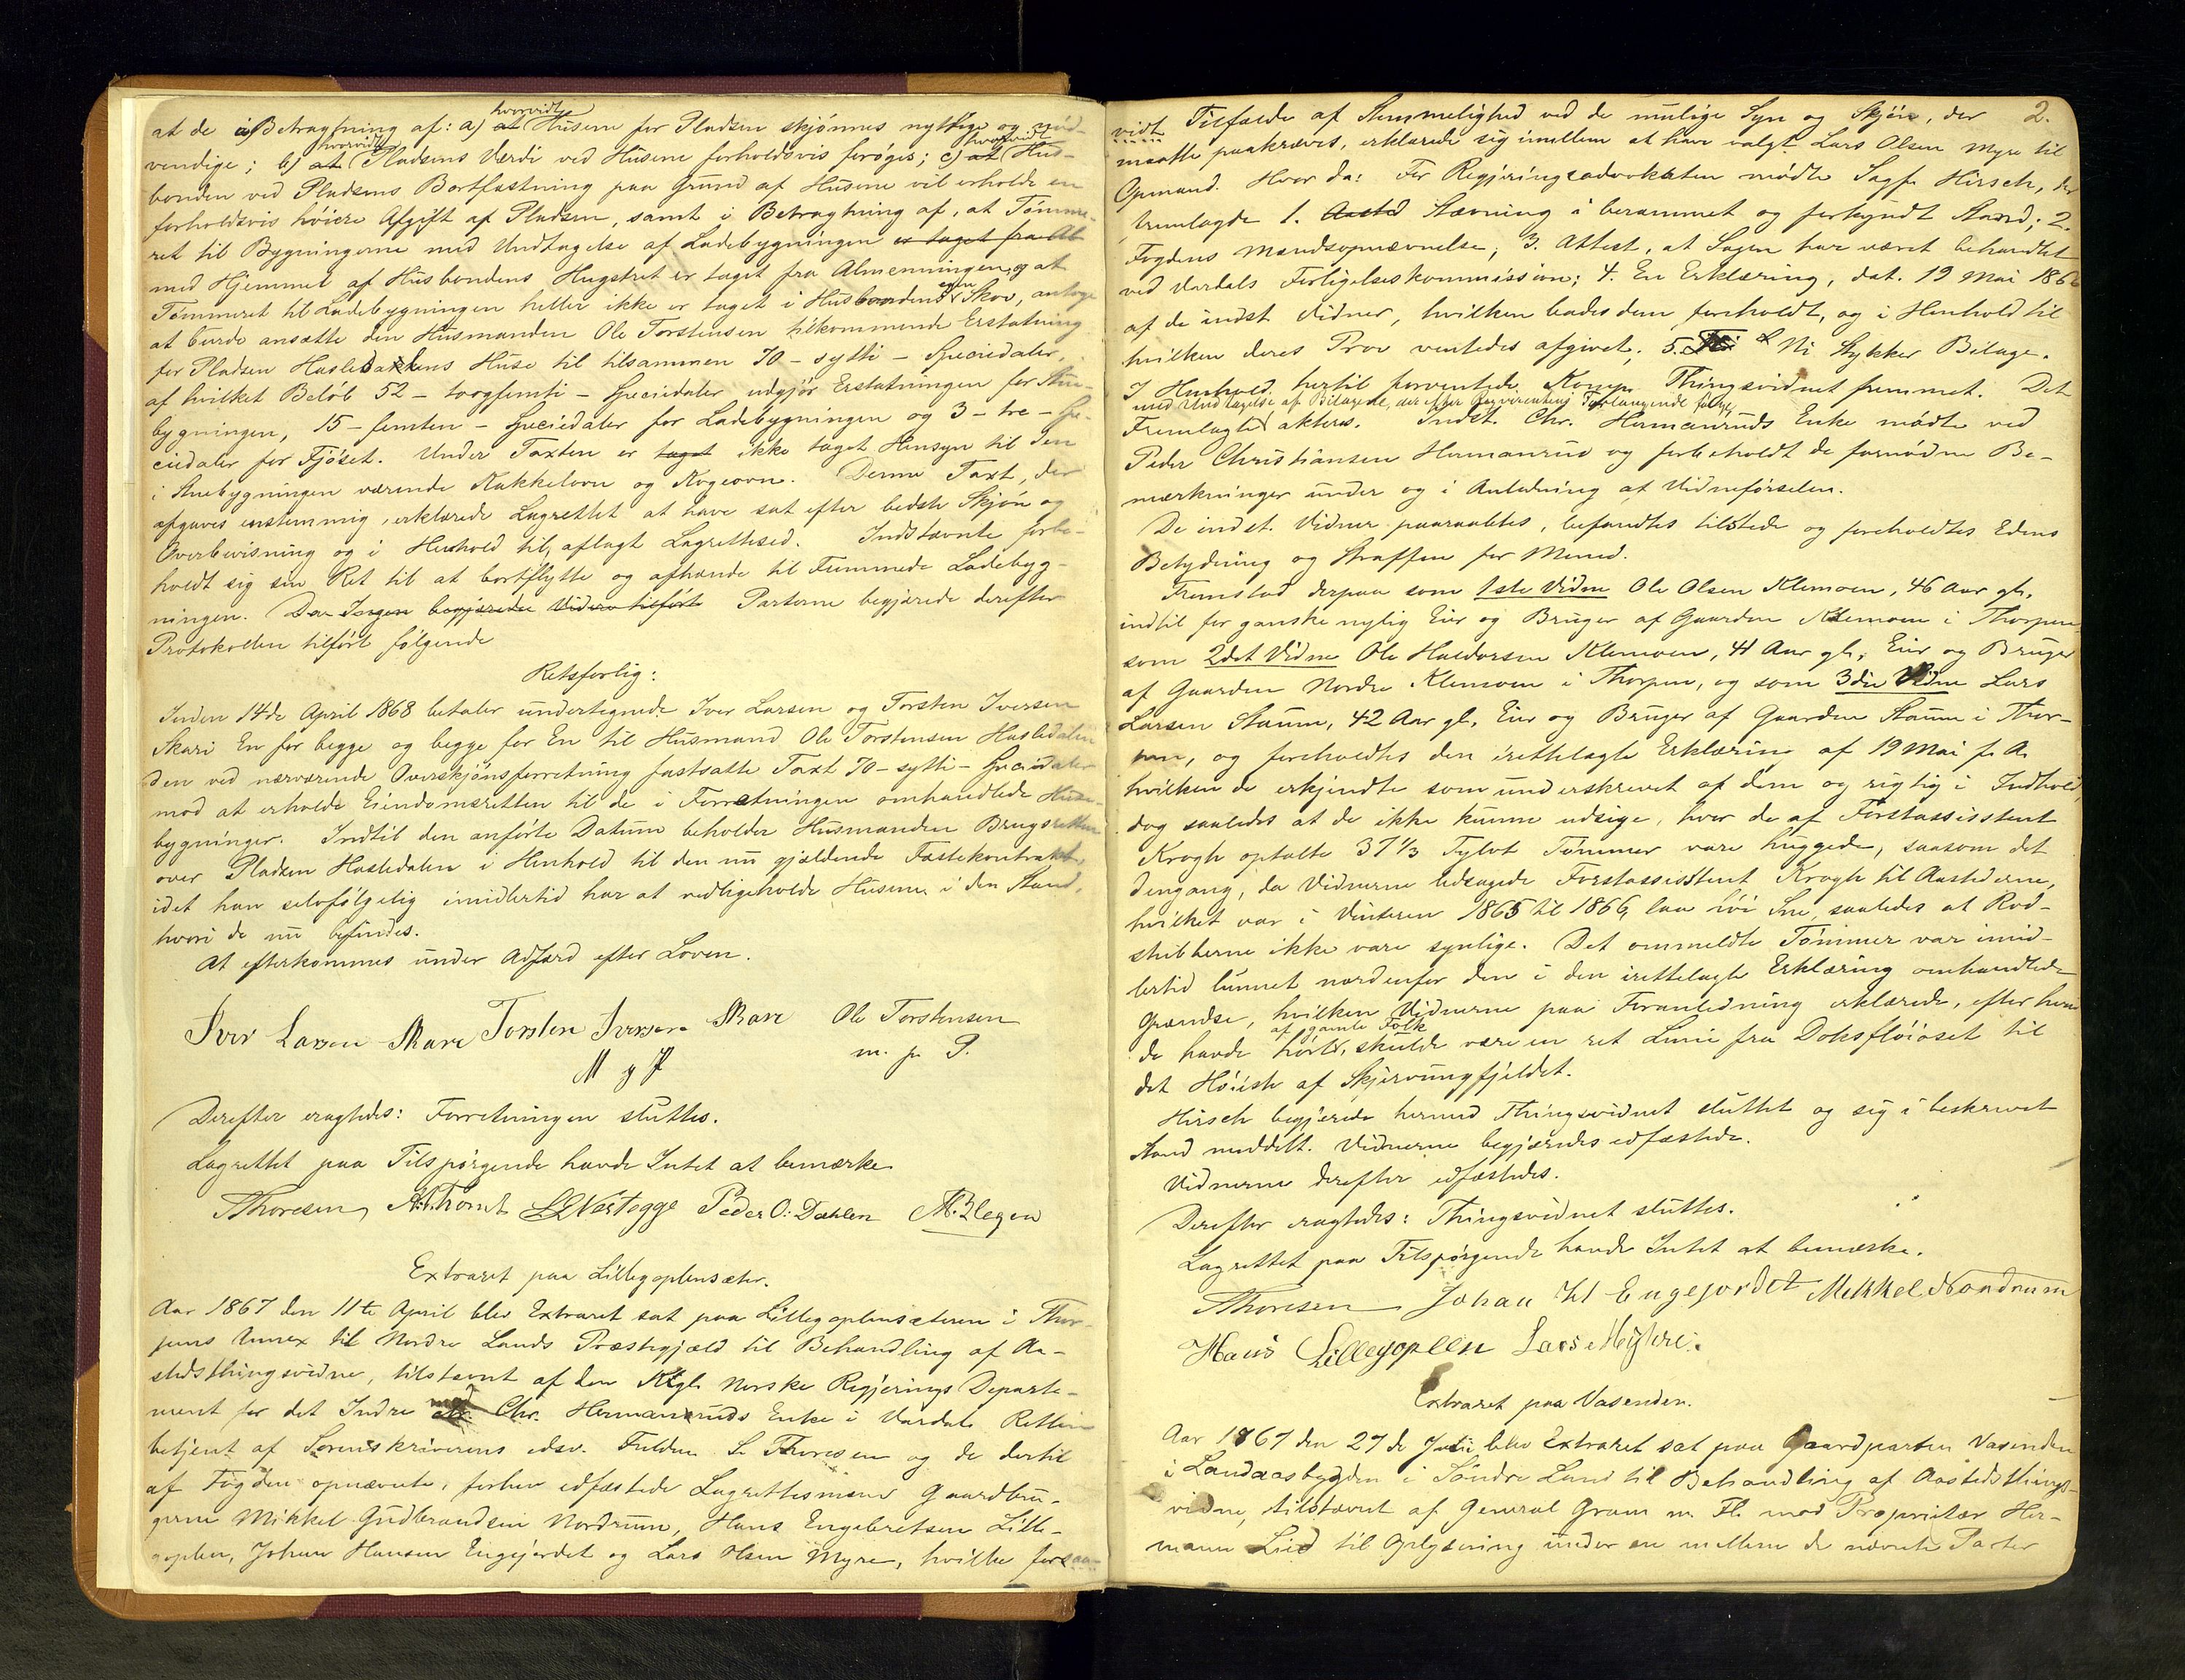 at de i Betragtning af: a) hvorvidt Husene for Pladsen skjønnes nyttige og nød-
vendige; b) hvorvidt Pladsens Værdi ved Husene forholdsvis forøges; c) hvorvidt Hus-
bonden ved Pladsens Bortfæstning paa Grund af Husene vil erholde en
forholdsvis høiere Afgift af Pladsen, samt i Betragtning af, at Tømme-
ret til Bygningerne med Undtagelse af Ladebygningen er taget fra Al
med Hjemmel af Husbondens Hugstret er taget fra Almenningen, og at
Tømmeret til Ladebygningen heller ikke er taget i Husbondens egen Skov, antoge
at burde ansætte den Husmanden Ole Torstensen tilkommende Erstatning
for Pladsen Hasledalens Huse til tilsammen 70 - sytti - Speciedaler,
af hvilket Beløb 52 - toogfemti - Speciedaler udgjør Erstatningen for Stue-
bygningen, 15 - femten - Speciedaler for Ladebygningen og 3 - tre - Spe-
ciedaler for Fjøset. Under Taxten er taget ikke taget Hensyn til den
i Stuebygningen værende Kakkelovn og Kogeovn. Denne Taxt, der
afgaves enstemmig, erklærede Lagrettet at have sat efter bedste Skjøn og
Overbevisning og i Henhold til aflagt Lagrettesed. Indstævnte forbe-
holdt sig sin Ret til at bortflytte og afhænde til Fremmede Ladebyg-
ningen. begjærede Videre tilført Parterne begjærede derefter
Protokollen tilført følgende
Retsforlig:
Inden 14de April 1868 betaler undertegnede Iver Larsen og Torsten Iversen
Skari En for begge og begge for En til Husmand Ole Torstensen Hasledalen
den ved nærværende Overskjønsforretning fastsatte Taxt 70 - sytti - Speciedaler
mod at erholde Eiendomsretten til de i Forretningen omhandlede Huse-
bygninger. Indtil den anførte Datum beholder Husmanden Brugsretten
over Pladsen Hasledalen i Henhold til den nu gjældende Fæstekontrakt,
idet han selvfølgelig imidlertid har at vedligeholde Husene i den Stand,
hvori de nu befindes.
At efterkommes under Adfærd efter Loven.
Iver Larsen Skare Torsten Iversen Skare Ole Torstensen
m. p. P.
Derefter eragtedes: Forretningen sluttes.
Lagrettet paa Tilspørgende havde Intet at bemærke.
Thoresen A. Tromt Vestegge Peder O: Dahlen M. Blegen
Extraret paa Lillegoplensæter.
Aar 1867 den 11te April blev Extraret sat paa Lillegoplensæteren i Thor-
pens Annex til Nordre Lands Præstegjæld til Behandling af Aa-
stedsthingsvidne, tilstævnt af den Kgl. Norske Regjerings Departe-
ment for det Indre mod Chr. Hermanruds Enke i Vardal. Retten
betjent af Sorenskriverens edsv. Fuldm. S. Thoresen og de dertil
af Fogden opnævnte, forhen edfæstede Lagrettesmænd Gaardbru-
gerne Mikkel Gudbrandsen Nordrum, Hans Engebretsen Lille-
goplen, Johan Hansen Engejordet og Lars Olsen Myre, hvilke forsaa-
2.
vidt Tilfælde af Stemmelighed ved de mulige Syn og Skjøn, der
maatte paakræves, erklærede sig imellem at have valgt Lars Olsen Myre til
Opmand. Hvor da: For Regjeringsadvokaten mødte Sagf. Hirsch, der
fremlagde 1. Aasted Stævning i berammet og forkyndt Stand; 2.
Fogdens Mandsopnævnelse; 3. Attest, at Sagen har været behandlet
ved Vardals Forligelseskommission; 4. En Erklæring, dat. 19 Mai 1866
af de indst Vidner, hvilken bades dem foreholdt, og i Henhold til
hvilken deres Prov ventedes afgivet; 5. Ni Stykker Bilage.
I Henhold hertil forventede Komp. Thingsvidnet fremmet. Det
med Undtagelse af Bilagene, der efter Forlangende følge,
Fremlagte akteres. Indst. Chr. Hermanruds Enke mødte ved
Peder Christiansen Hermanrud og forbeholdt de fornødne Be-
mærkninger under og i Anledning af Vidneførselen.
De indst. Vidner paaraabtes, befandtes tilstede og foreholdtes Edens
Betydning og Straffen for Mened.
Fremstod derpaa som 1ste Vidne Ole Olsen Klemoen, 46 Aar gl.,
indtil for ganske nylig Eier og Bruger af Gaarden Klemoen i Thorpen,
som 2det Vidne Ole Haldorsen Klemoen, 41 Aar gl., Eier og Bruger
af Gaarden Nordre Klemoen i Thorpen, og som 3die Vidne Lars
Larsen Staum, 42 Aar gl., Eier og Bruger af Gaarden Staum i Thor-
pen, og foreholdtes den irettelagte Erklæring af 19 Mai f. A.
hvilken de erkjendte som underskrevet af dem og rigtig i Indhold,
dog saaledes at de ikke kunne udsige, hvor de af Forstassistent
Krogh optalte 37 1/3 Tylvt Tømmer vare huggede, saasom det
dengang, da Vidnerne ledsagede Forstassistent Krogh til Aastederne,
hvilket var i Vinteren 1865 til 1866, laa høi Sne, saaledes at Rod-
stubberne ikke vare synlige. Det ommeldte Tømmer var imid-
lertid lunnet nordenfor den i den irettelagte Erklæring omhandlede
Grændse, hvilken Vidnerne paa Foranledning erklærede, efter hvad
de havde hørt af gamle Folk, skulde være en ret Linie fra Doksfløioset til
det Høieste af Skjervungfjeldet.
Hirsch begjærede hermed Thingsvidnet sluttet og sig i beskrevet
Stand meddelt. Vidnerne begjæredes edfæstede.
Vidnerne derefter edfæstedes.
Derefter eragtedes: Thingsvidnet sluttes.
Lagrettet paa Tilspørgende havde Intet at bemærke.
Thoresen Johan H Engejordet Mikkel Nordrum
Hans Lillegoplen Lars Myhre.
Extraret paa Vasenden.
Aar 1867 den 27de Juli blev Extraret sat paa Gaardparten Vasenden
i Landaasbygden i Søndre Land til Behandling af Aastedsthings-
vidne, tilstævnt af General Gram m. Fl. mod Proprietær Her-
mann Lied til Oplysning under en mellem de nævnte Parter